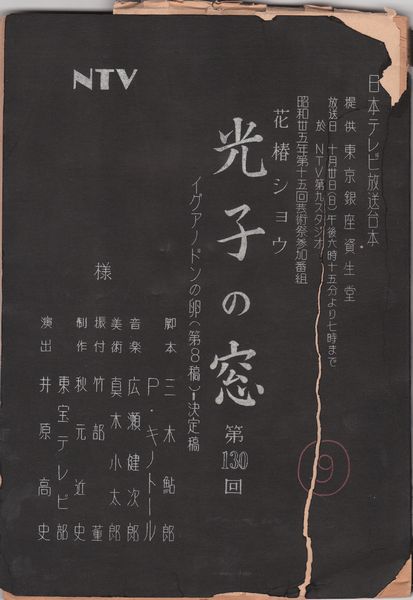 日本テレビ放送台本
提供 東京銀座資生堂
放送日 十月卅日(日)午後六時十五分より七時まで
於 NTV第九スタジオ
昭和卅五年第十五回芸術祭参加番組
花椿ショウ
光子の窓 第130回
イグアノドンの卵(第8稿)ー決定稿
脚本 三木鮎郎
P・キノトール
音楽 広瀬健次郎
美術 真木小太郎
振付 竹部董
制作 秋元近史
東宝テレビ部
演出 井原高史
様
NTV
9